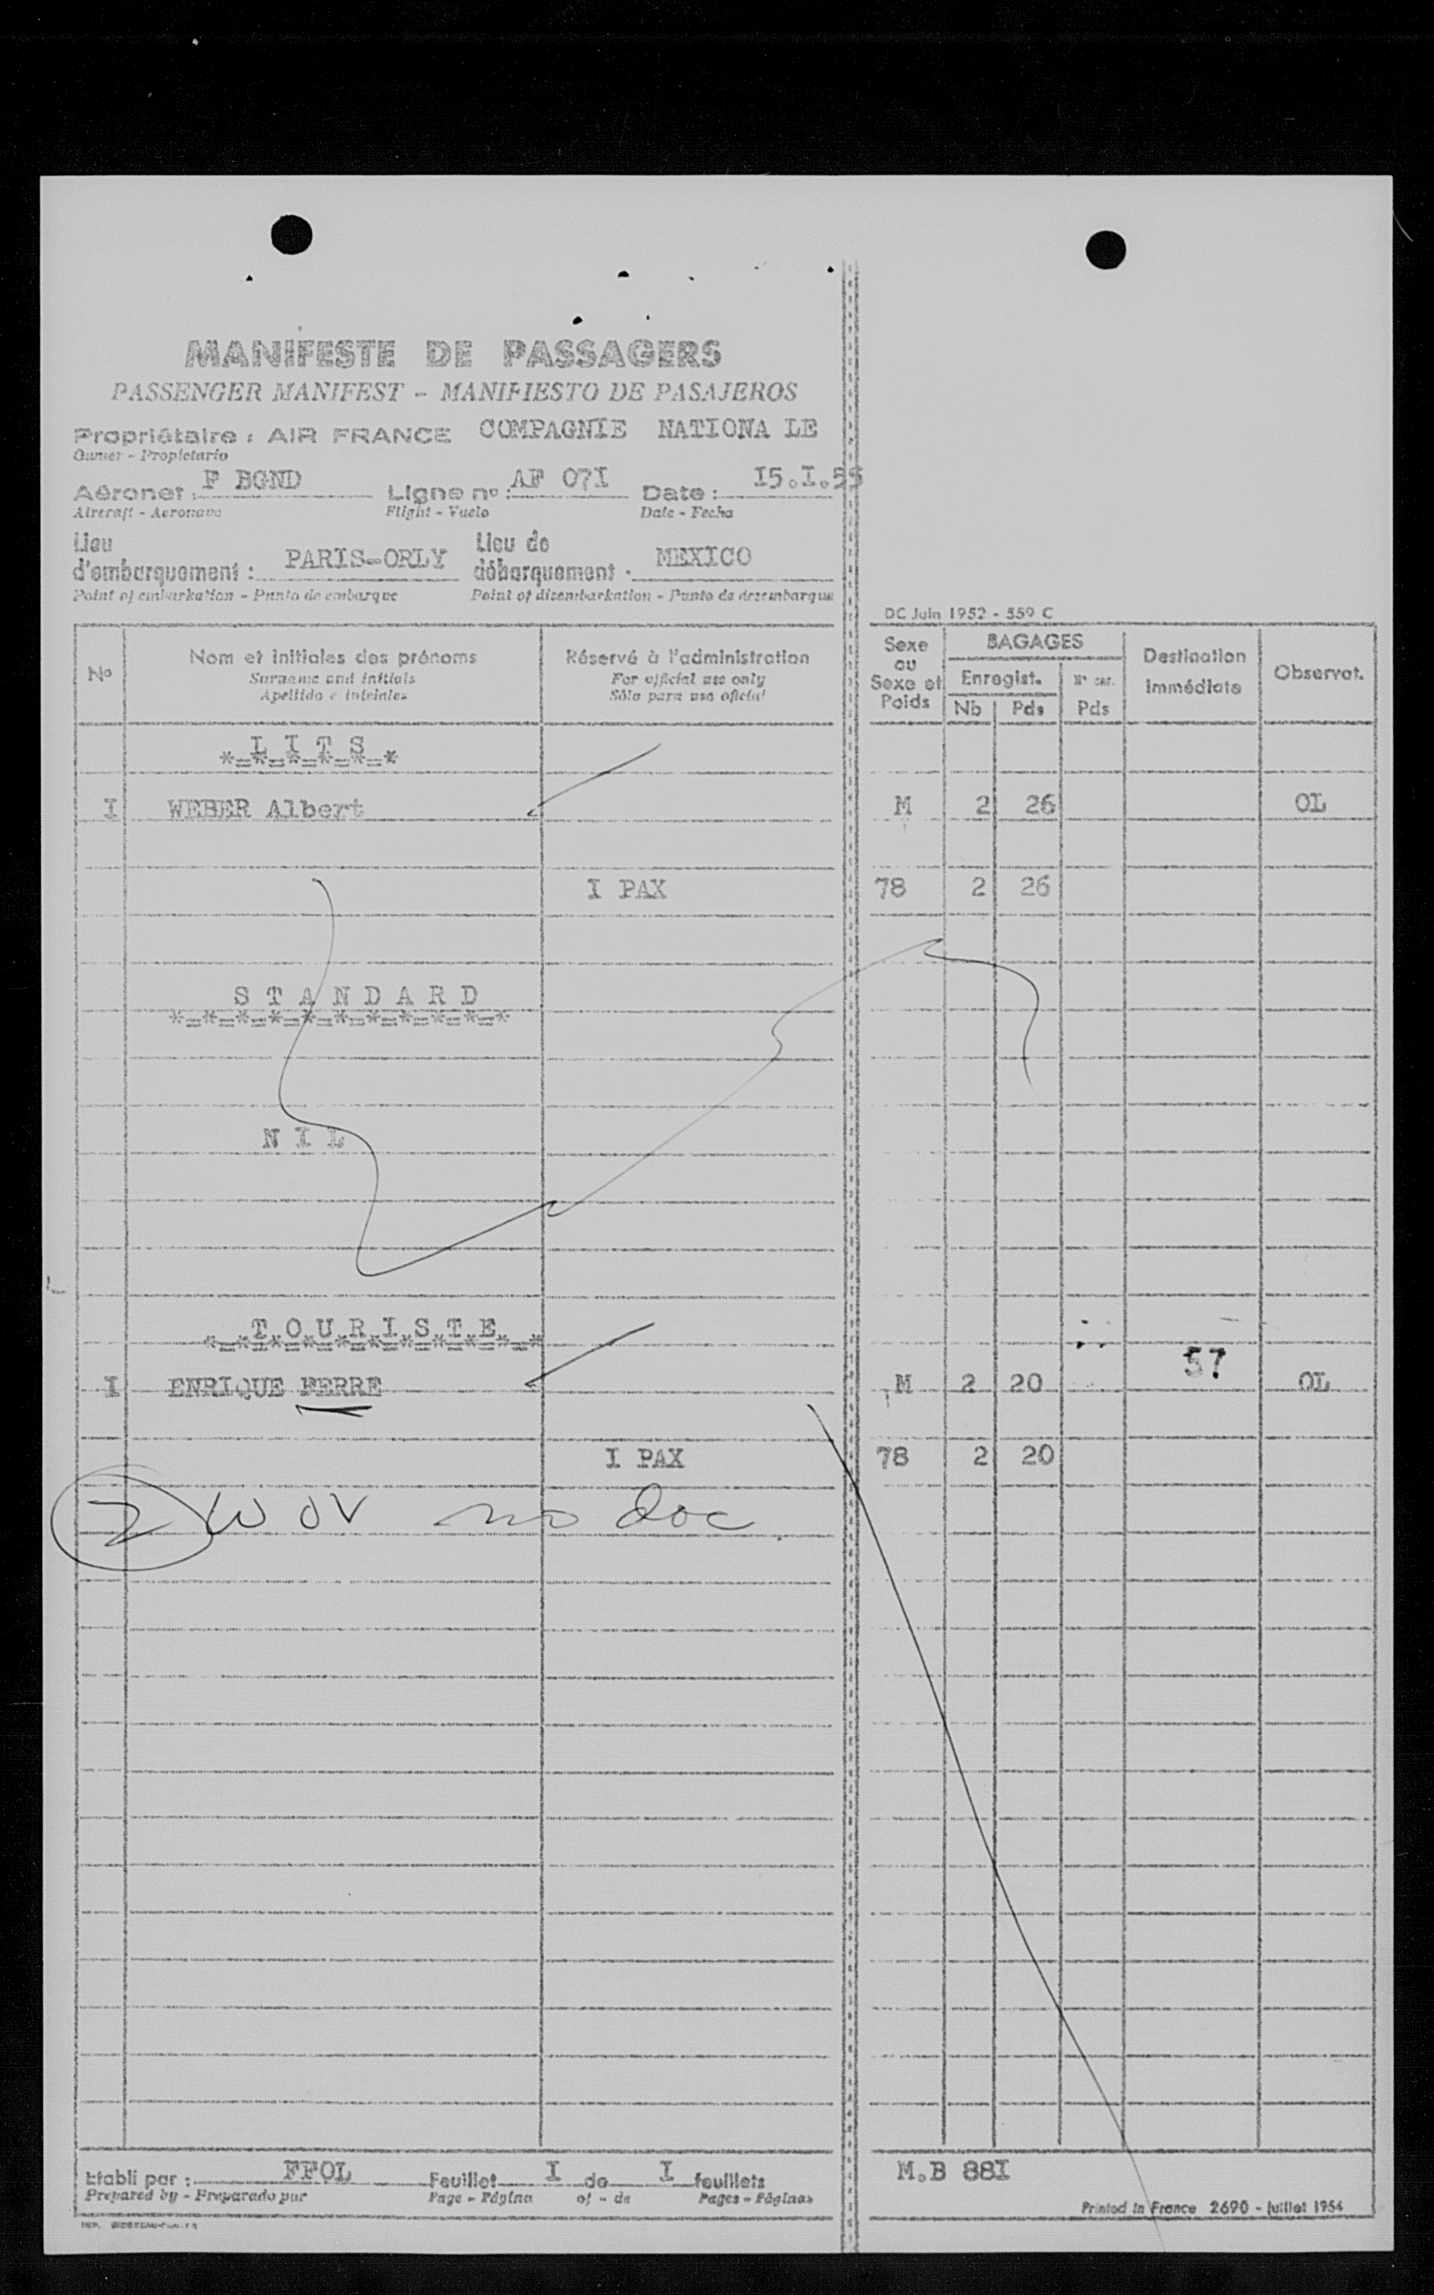 MANIFESTE DE PASSAGERS
PASSENGER MANIFEST - MANIFIESTO DE PASAJEROS
Propriétaire : AIR FRANCE COMPAGNIE NATIONA LE
Owner - Propietario
Aéronef : F BGND Ligne no : AF 07I Date : I5.I.55
Aircraft - Aeronave Flight - Vuelo Date - Fecha
Lieu d'embarquement : PARIS-ORLY Lieu de débarquement : MEXICO
Point of embarkation - Punto de embarque Point of disembarkation - Punto de desembarque
DC Juin 1952 - 559 C
No Nom et initiales des prénoms Réservé à l'administration Sexe ou Sexe et Poids BAGAGES Destination immédiate Observat.
Surname and initials For official use only Enregist. N° car.
Apellido e iniciales Sólo para uso oficial Nb Pds Pds
L I T S
*=*=*=*=*=*
I WEBER Albert M 2 26 OL
I PAX 78 2 26
S T A N D A R D
*=*=*=*=*=*=*=*=*=*=*
N I L
T O U R I S T E
*=*=*=*=*=*=*=*=*=*=*
57
I ENRIQUE FERRE M 2 20 OL
I PAX 78 2 20
2 W OV no doc.
Etabli par : FFOL Feuillet I de I feuillets M.B 88I
Prepared by - Preparado por Page - Página of - de Pages - Páginas
Printed in France 2690 - Juillet 1954